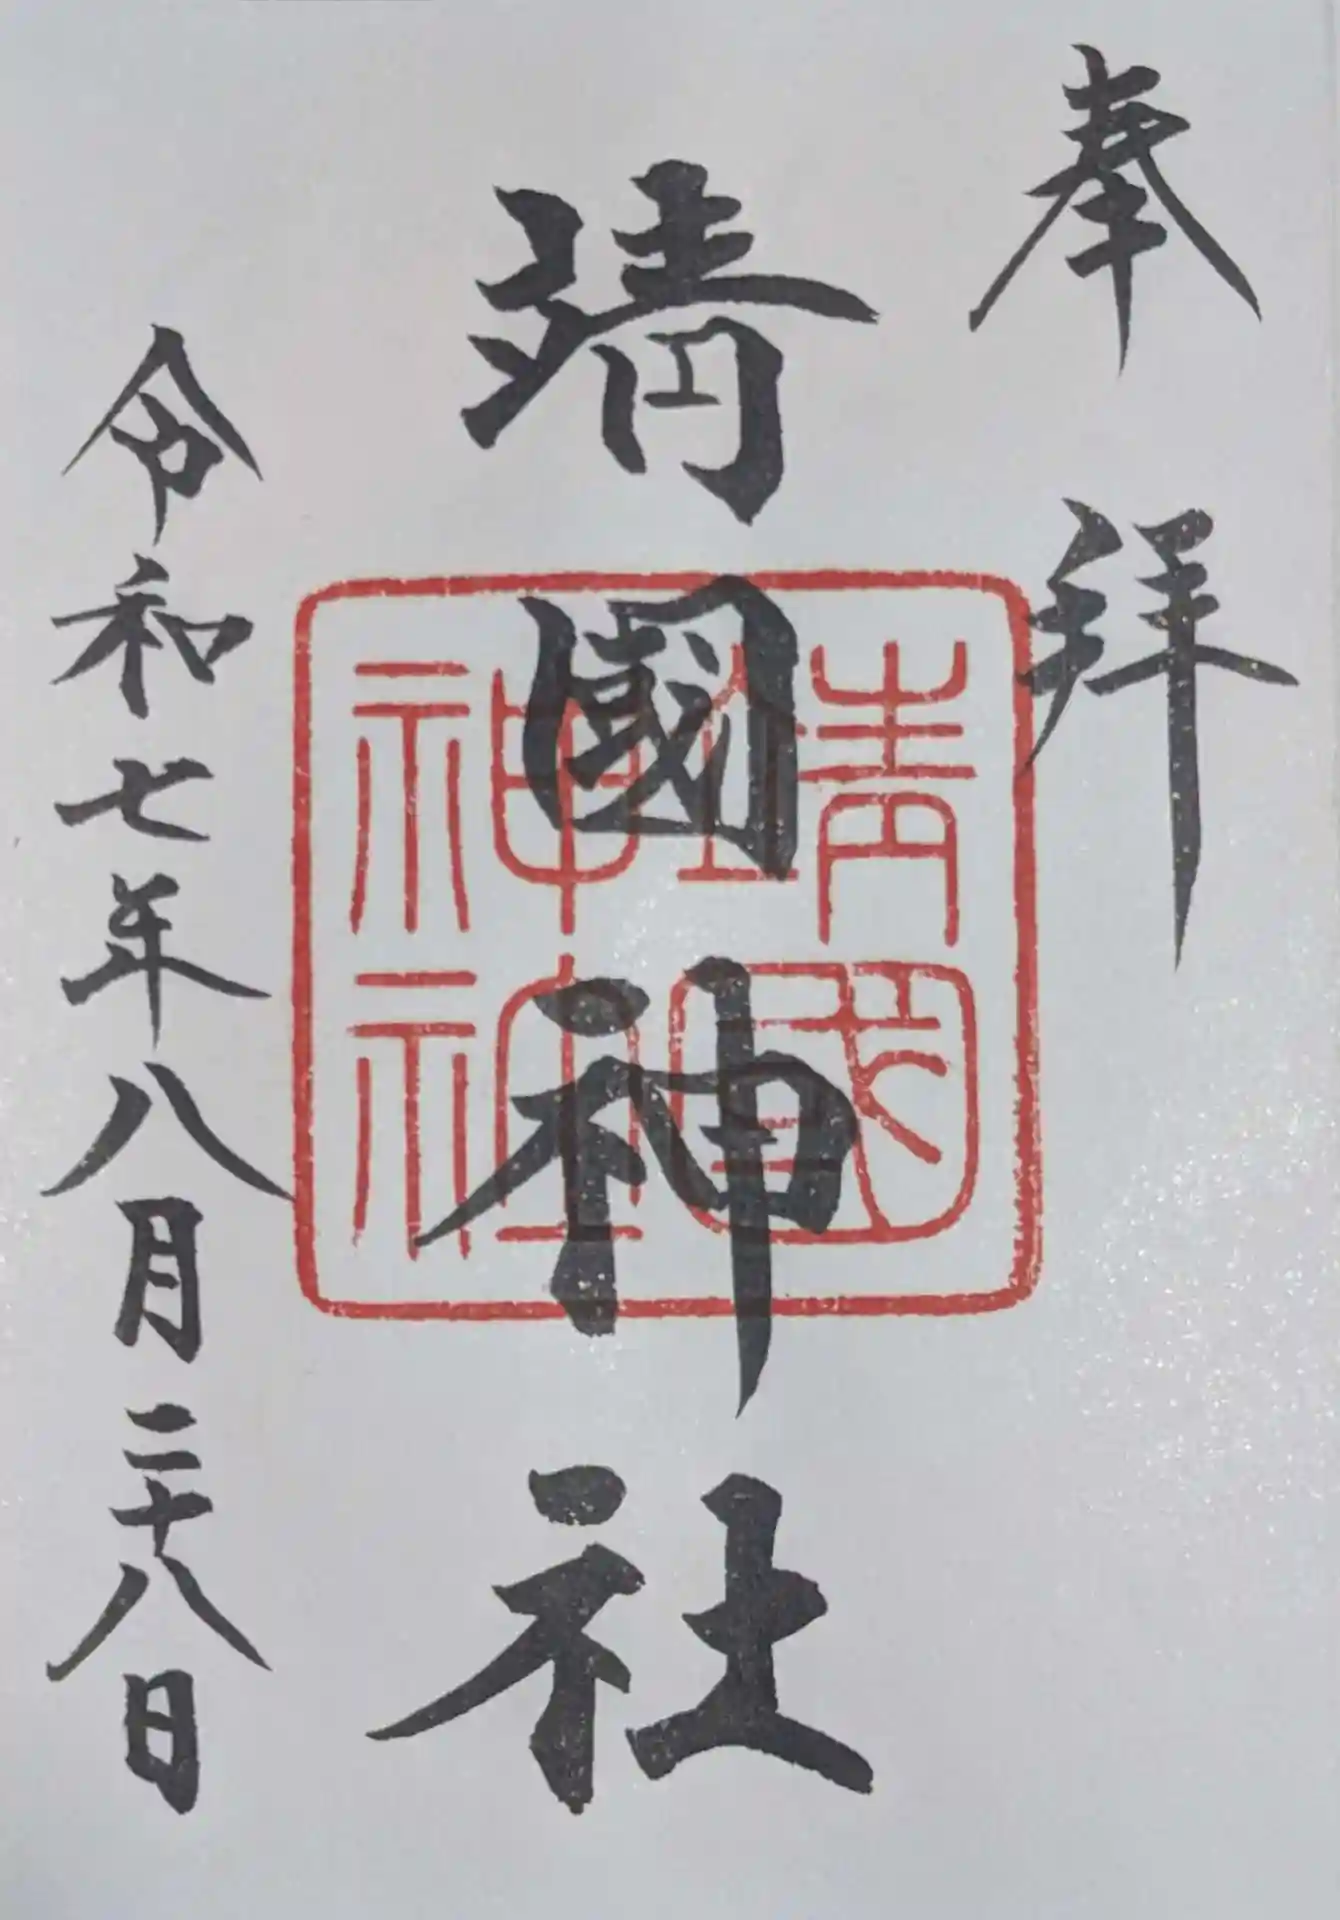 奉拜
靖國神社
靖國
神社
令和七年八月二十八日